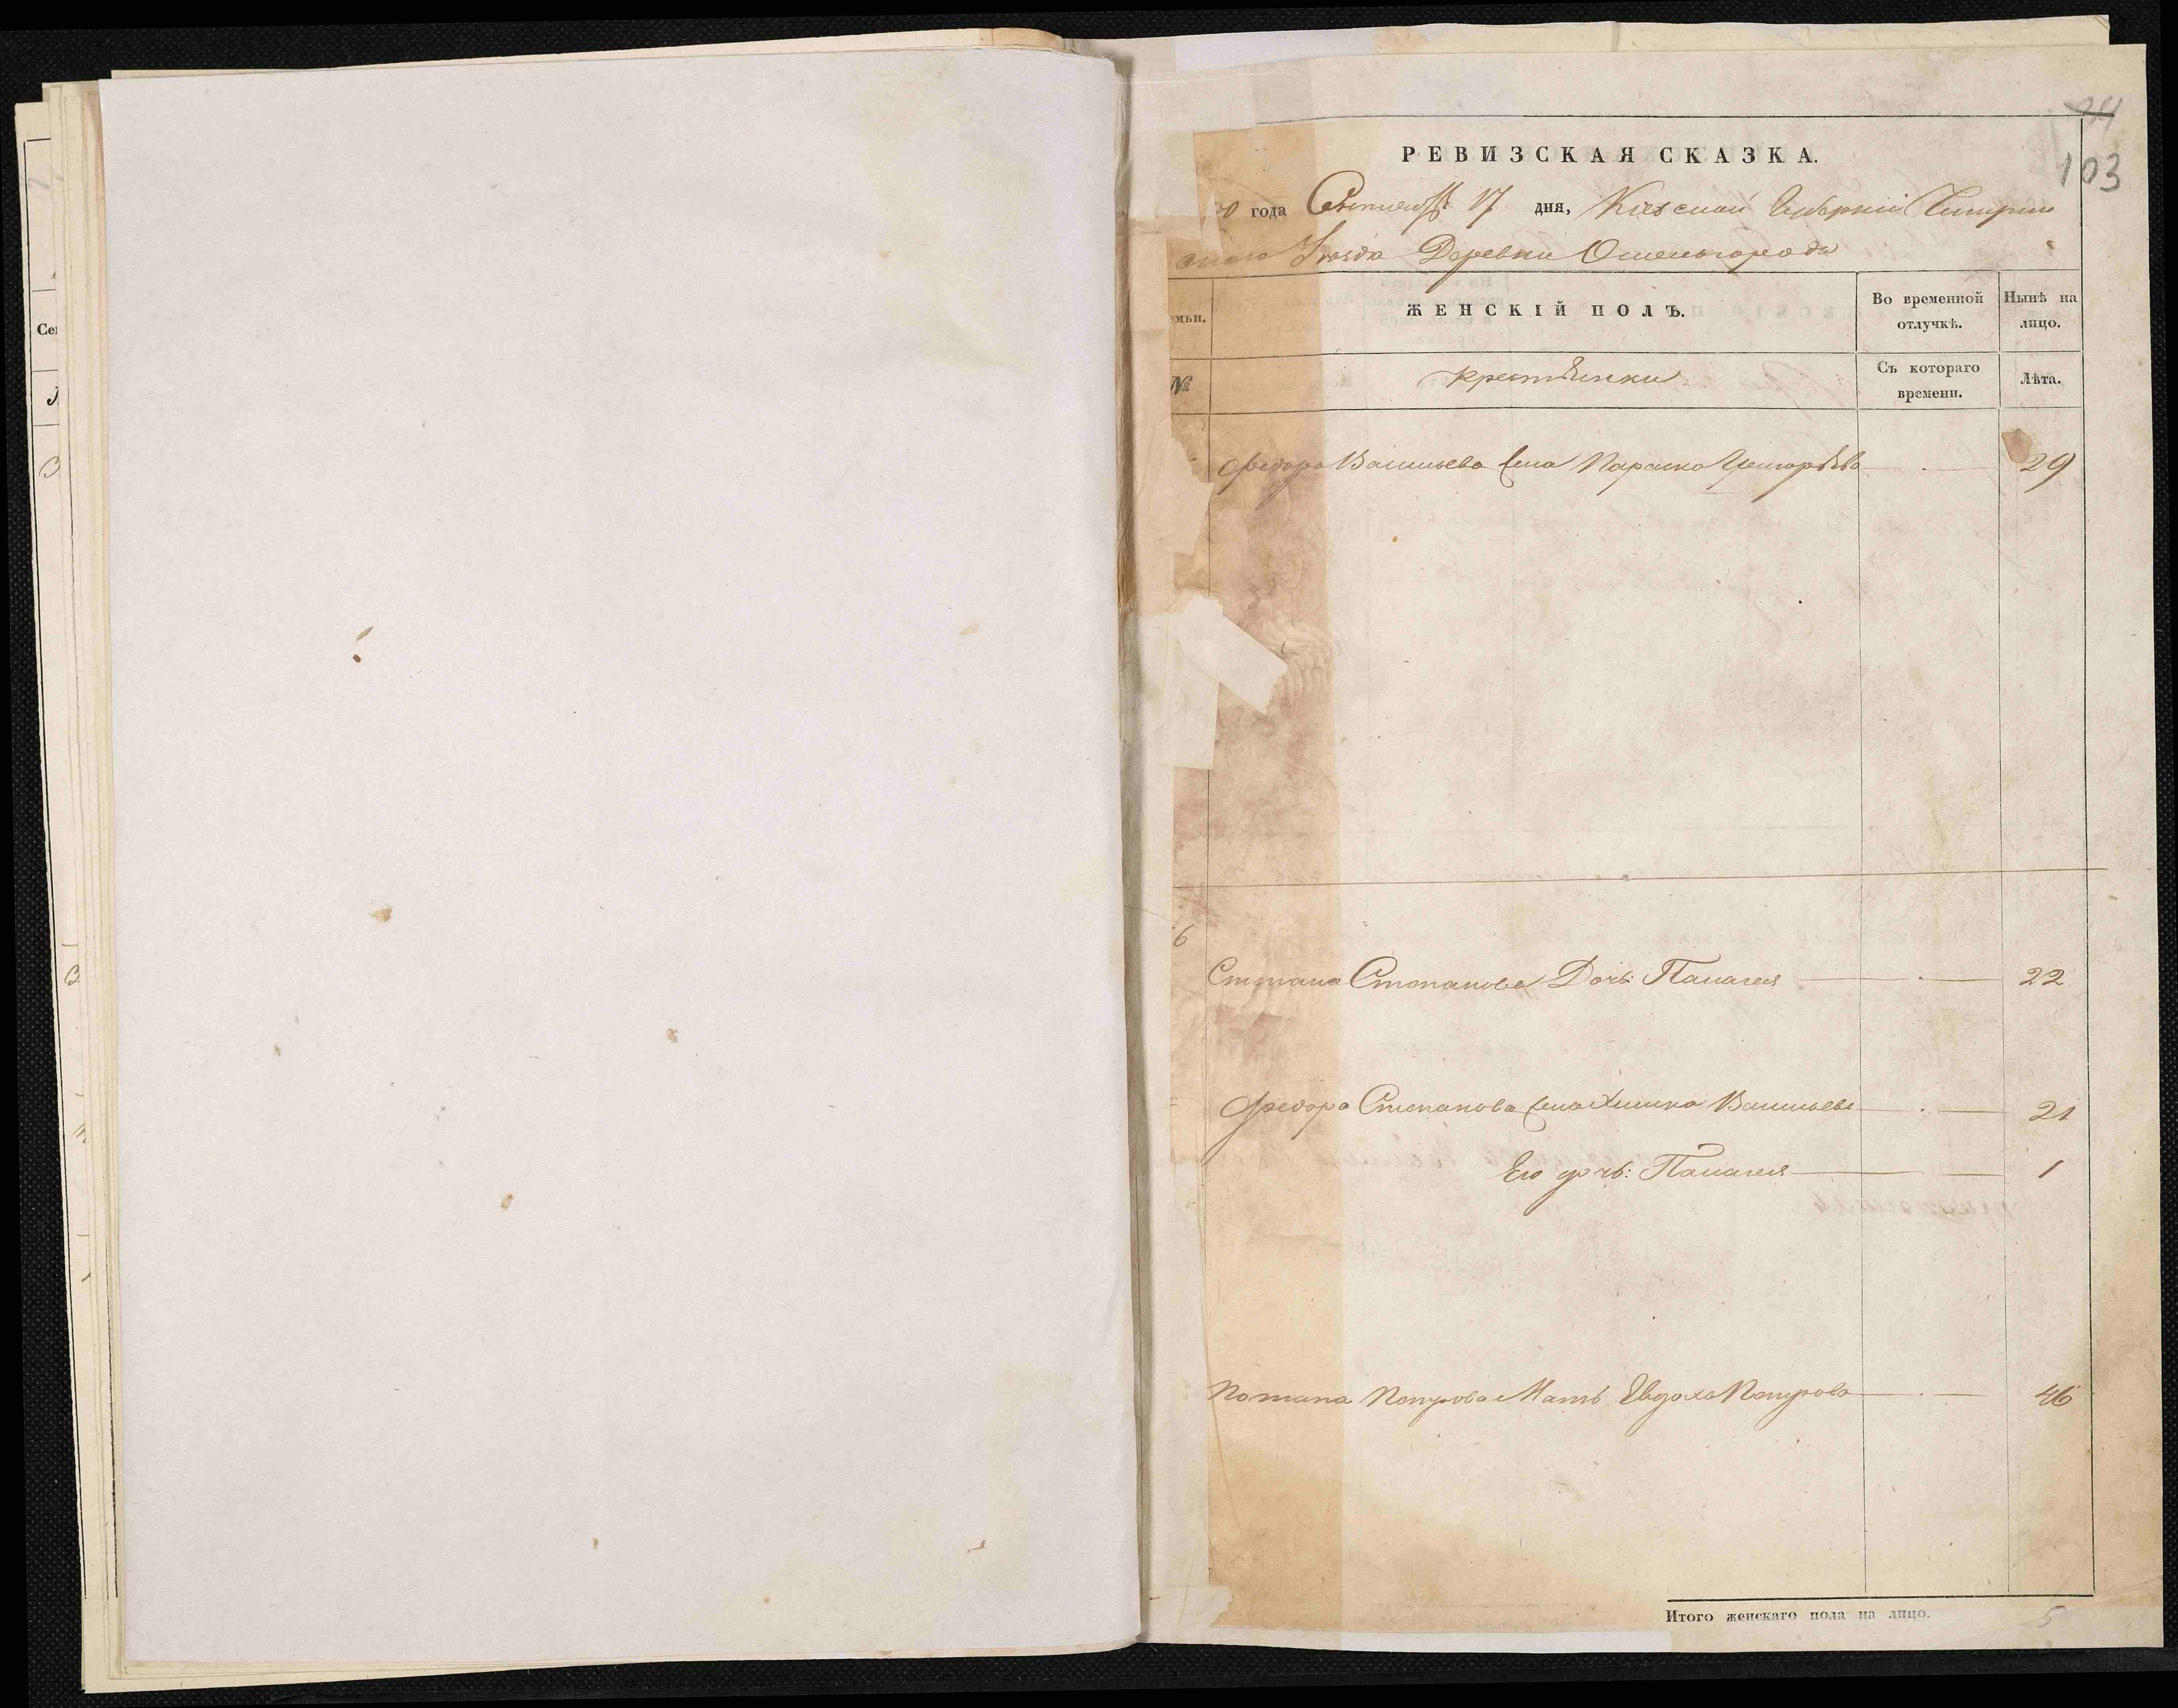 94
103
РЕВИЗСКАЯ СКАЗКА.
0 года Сентября 17 дня, Киевской Губернии Чигрин
скаго Уезда Деревни
мьи. ЖЕНСКІЙ ПОЛЪ. Во временной отлучкѣ. Нынѣ на лицо.
№ крестьянки Съ котораго времени. Лѣта.
Федора Васильева жена Параска Григорьева 29
6
Степана Степанова Дочь: Палагея 22
Федора Степанова жена Васильева 21
Его дочь: Палагея 1
Потапа Петрова Мать Евдоха Петрова 46
Итого женскаго пола на лицо. 5
Се